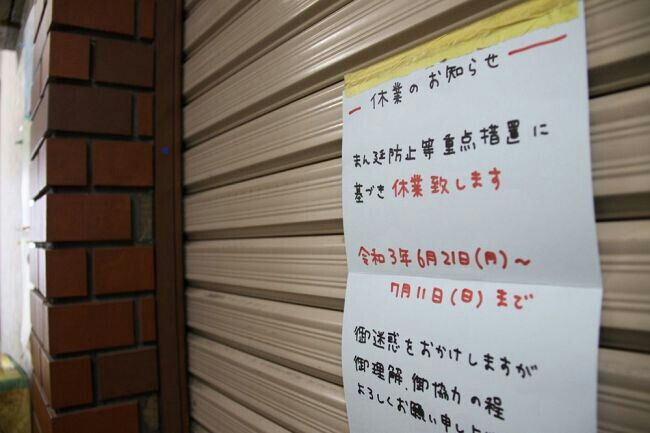 休業のお知らせ
まん延防止等重点措置に
基づき 休業致します
令和3年6月21日(月)~
7月11日(日)まで
御迷惑をおかけしますが
御理解、御協力の程
よろしくお願い申し上